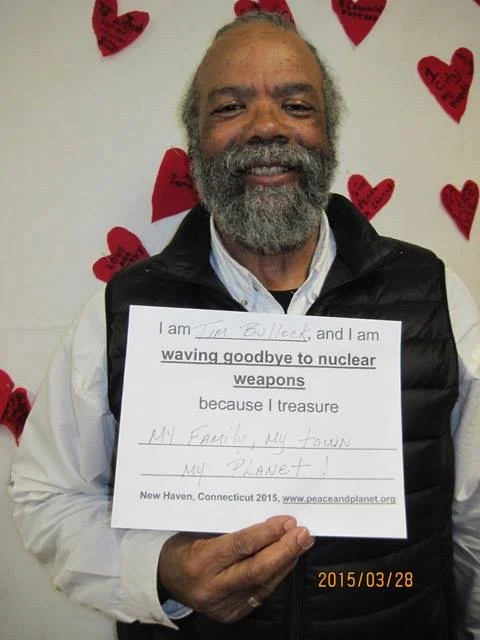 I am Tim Bullock, and I am
waving goodbye to nuclear
weapons
because I treasure
My Family, My town
My Planet!
New Haven, Connecticut 2015, www.peaceandplanet.org
2015/03/28